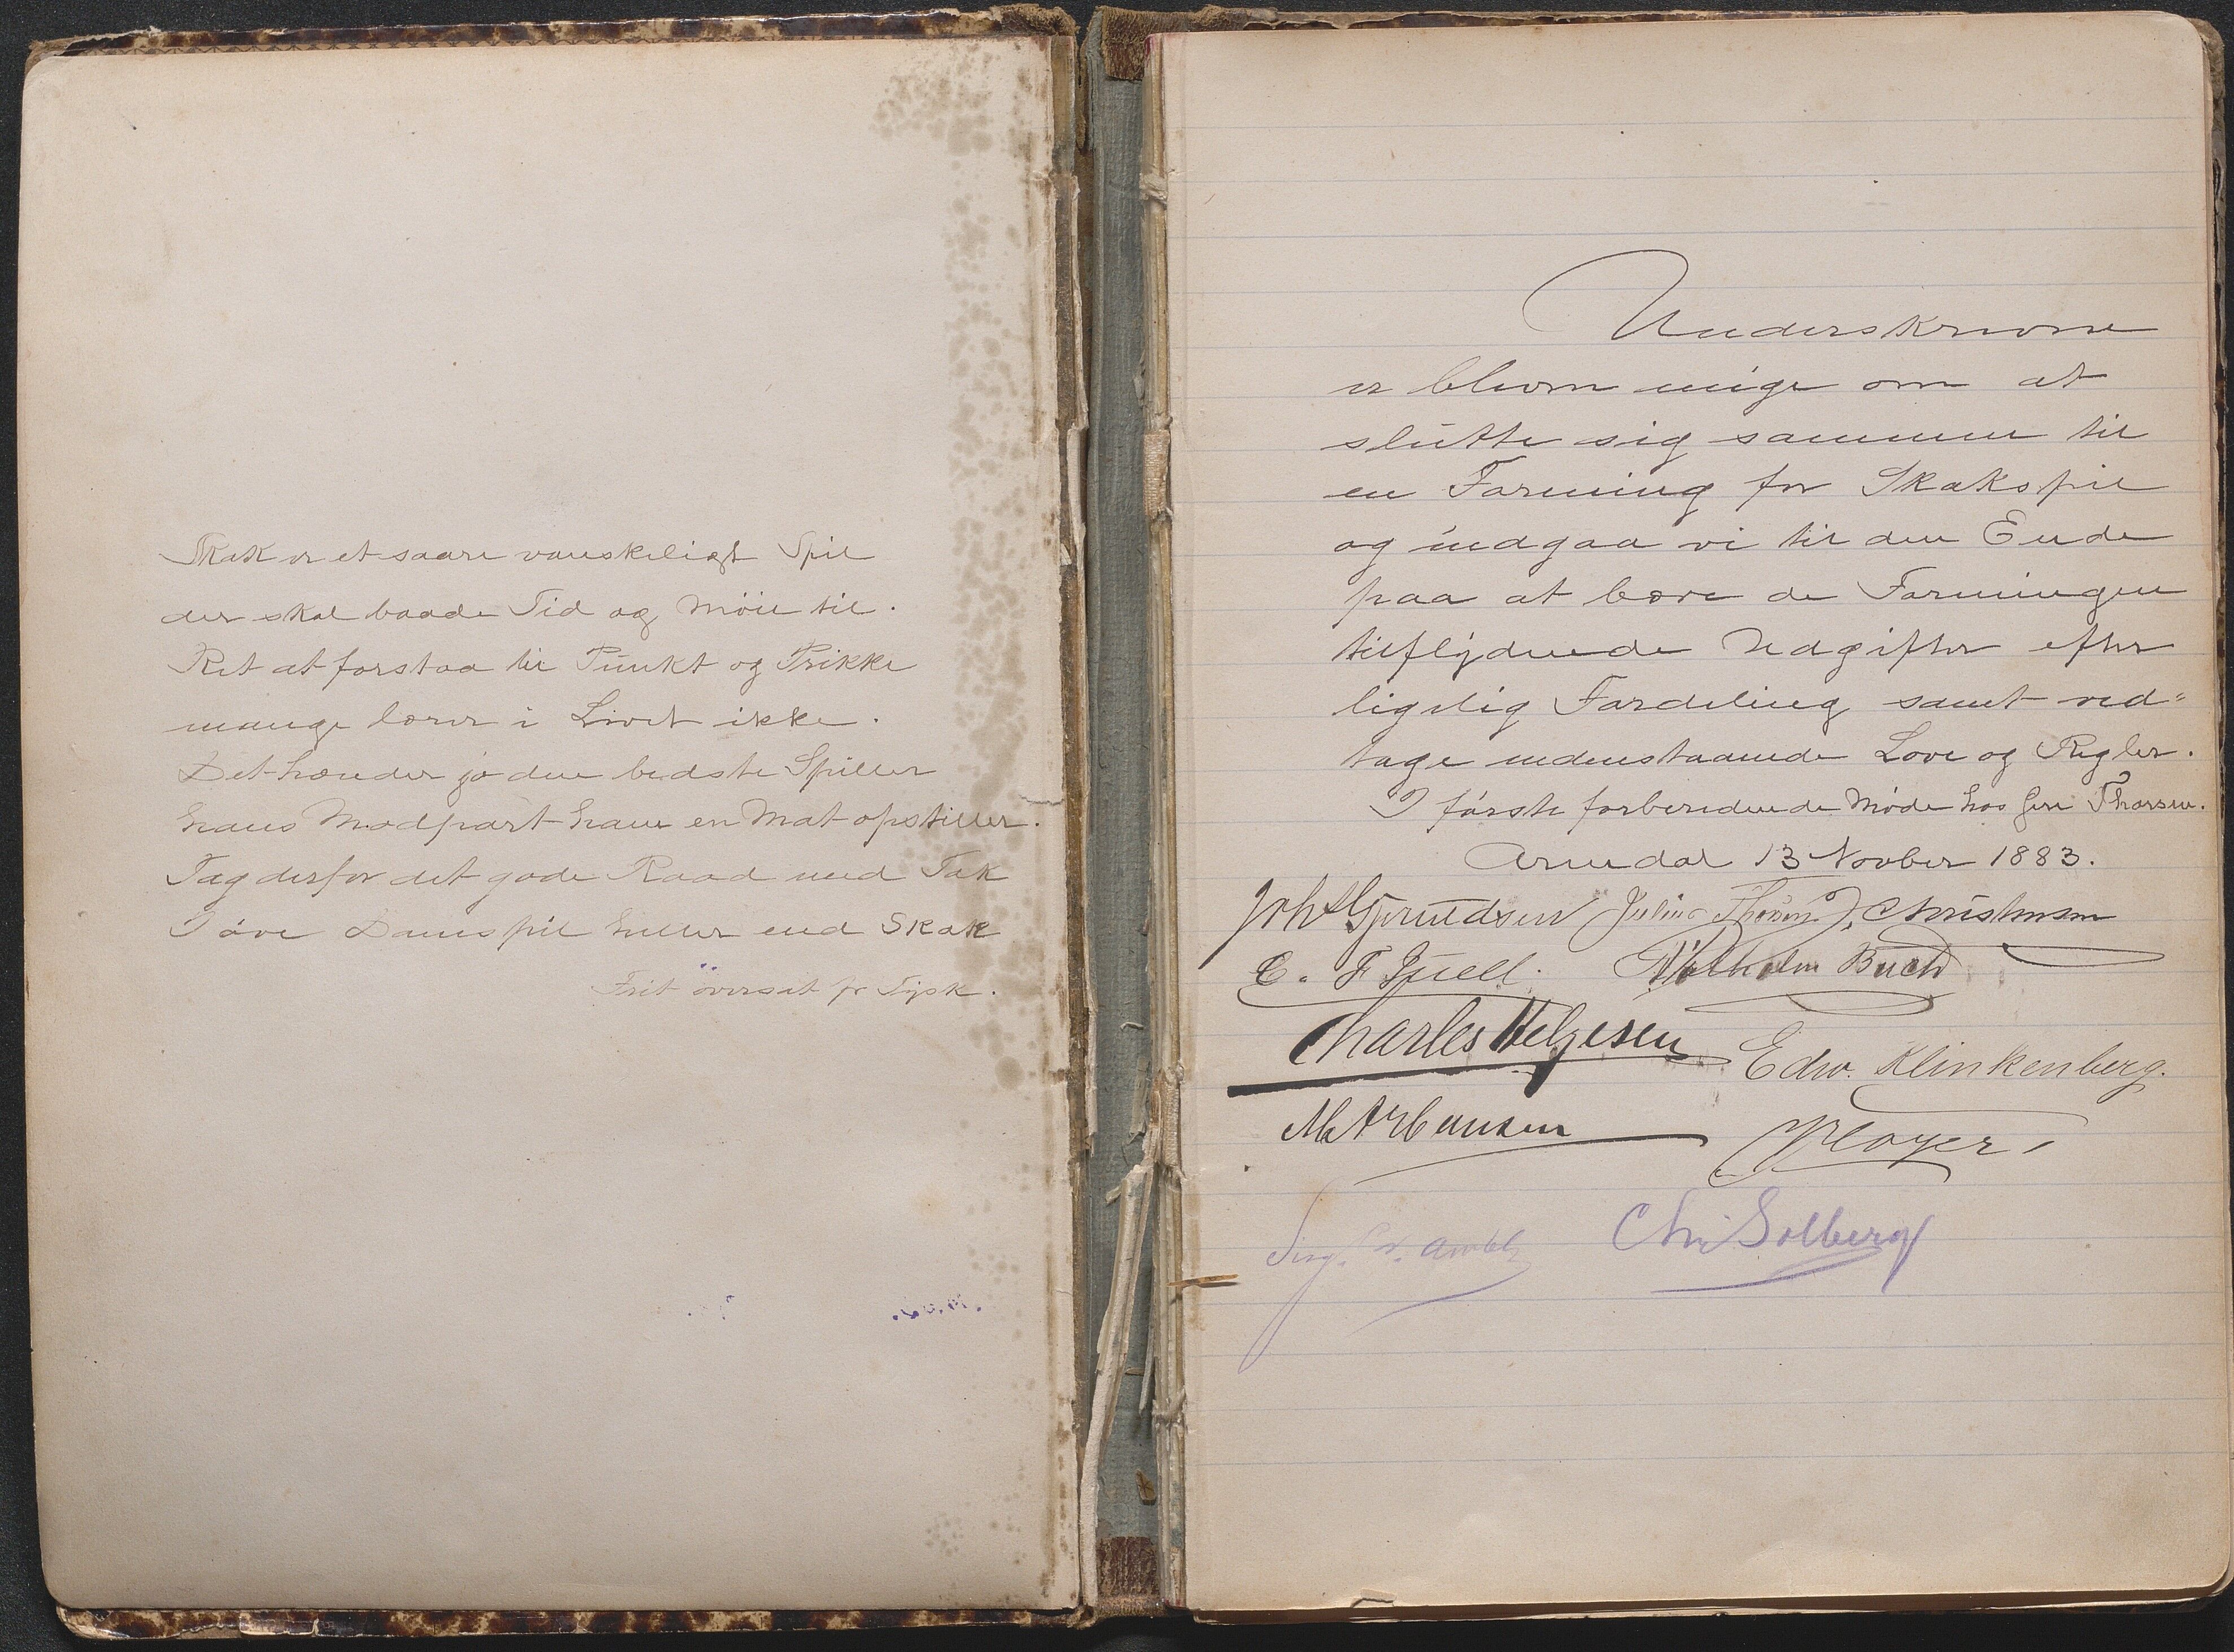 Skak er et saare vanskeligt Spil
der skal baade Tid og Möie til.
Ret at forstaa til Punkt og Prikke
mange lærer i Livet ikke.
Det hænder jo den bedste Spiller
hans Modpart ham en Mat opstiller.
Tag derfor det gode Raad med Tak
I öve Damspil heller end Skak
Frit oversat fr Tysk.
Underskrevne
er bleven enige om at
slutte sig sammen til
en Forening for Skakspil
og indgaa vi til den Ende
paa at bære de Foreningen
tilflydende Udgifter efter
ligelig Fordeling samt ved=
tage nedenstaaende Love og Regler.
I förste forberedende Möde hos Hrr Thorsen.
Arendal 13 Novber 1883.
Joh Gjerudsen Julius Thorsen J. Christensen
C. F. Juell. Wilhelm Buch
Charles Helgesen Edw. Klinkenberg.
Ployer
Chr Solberg